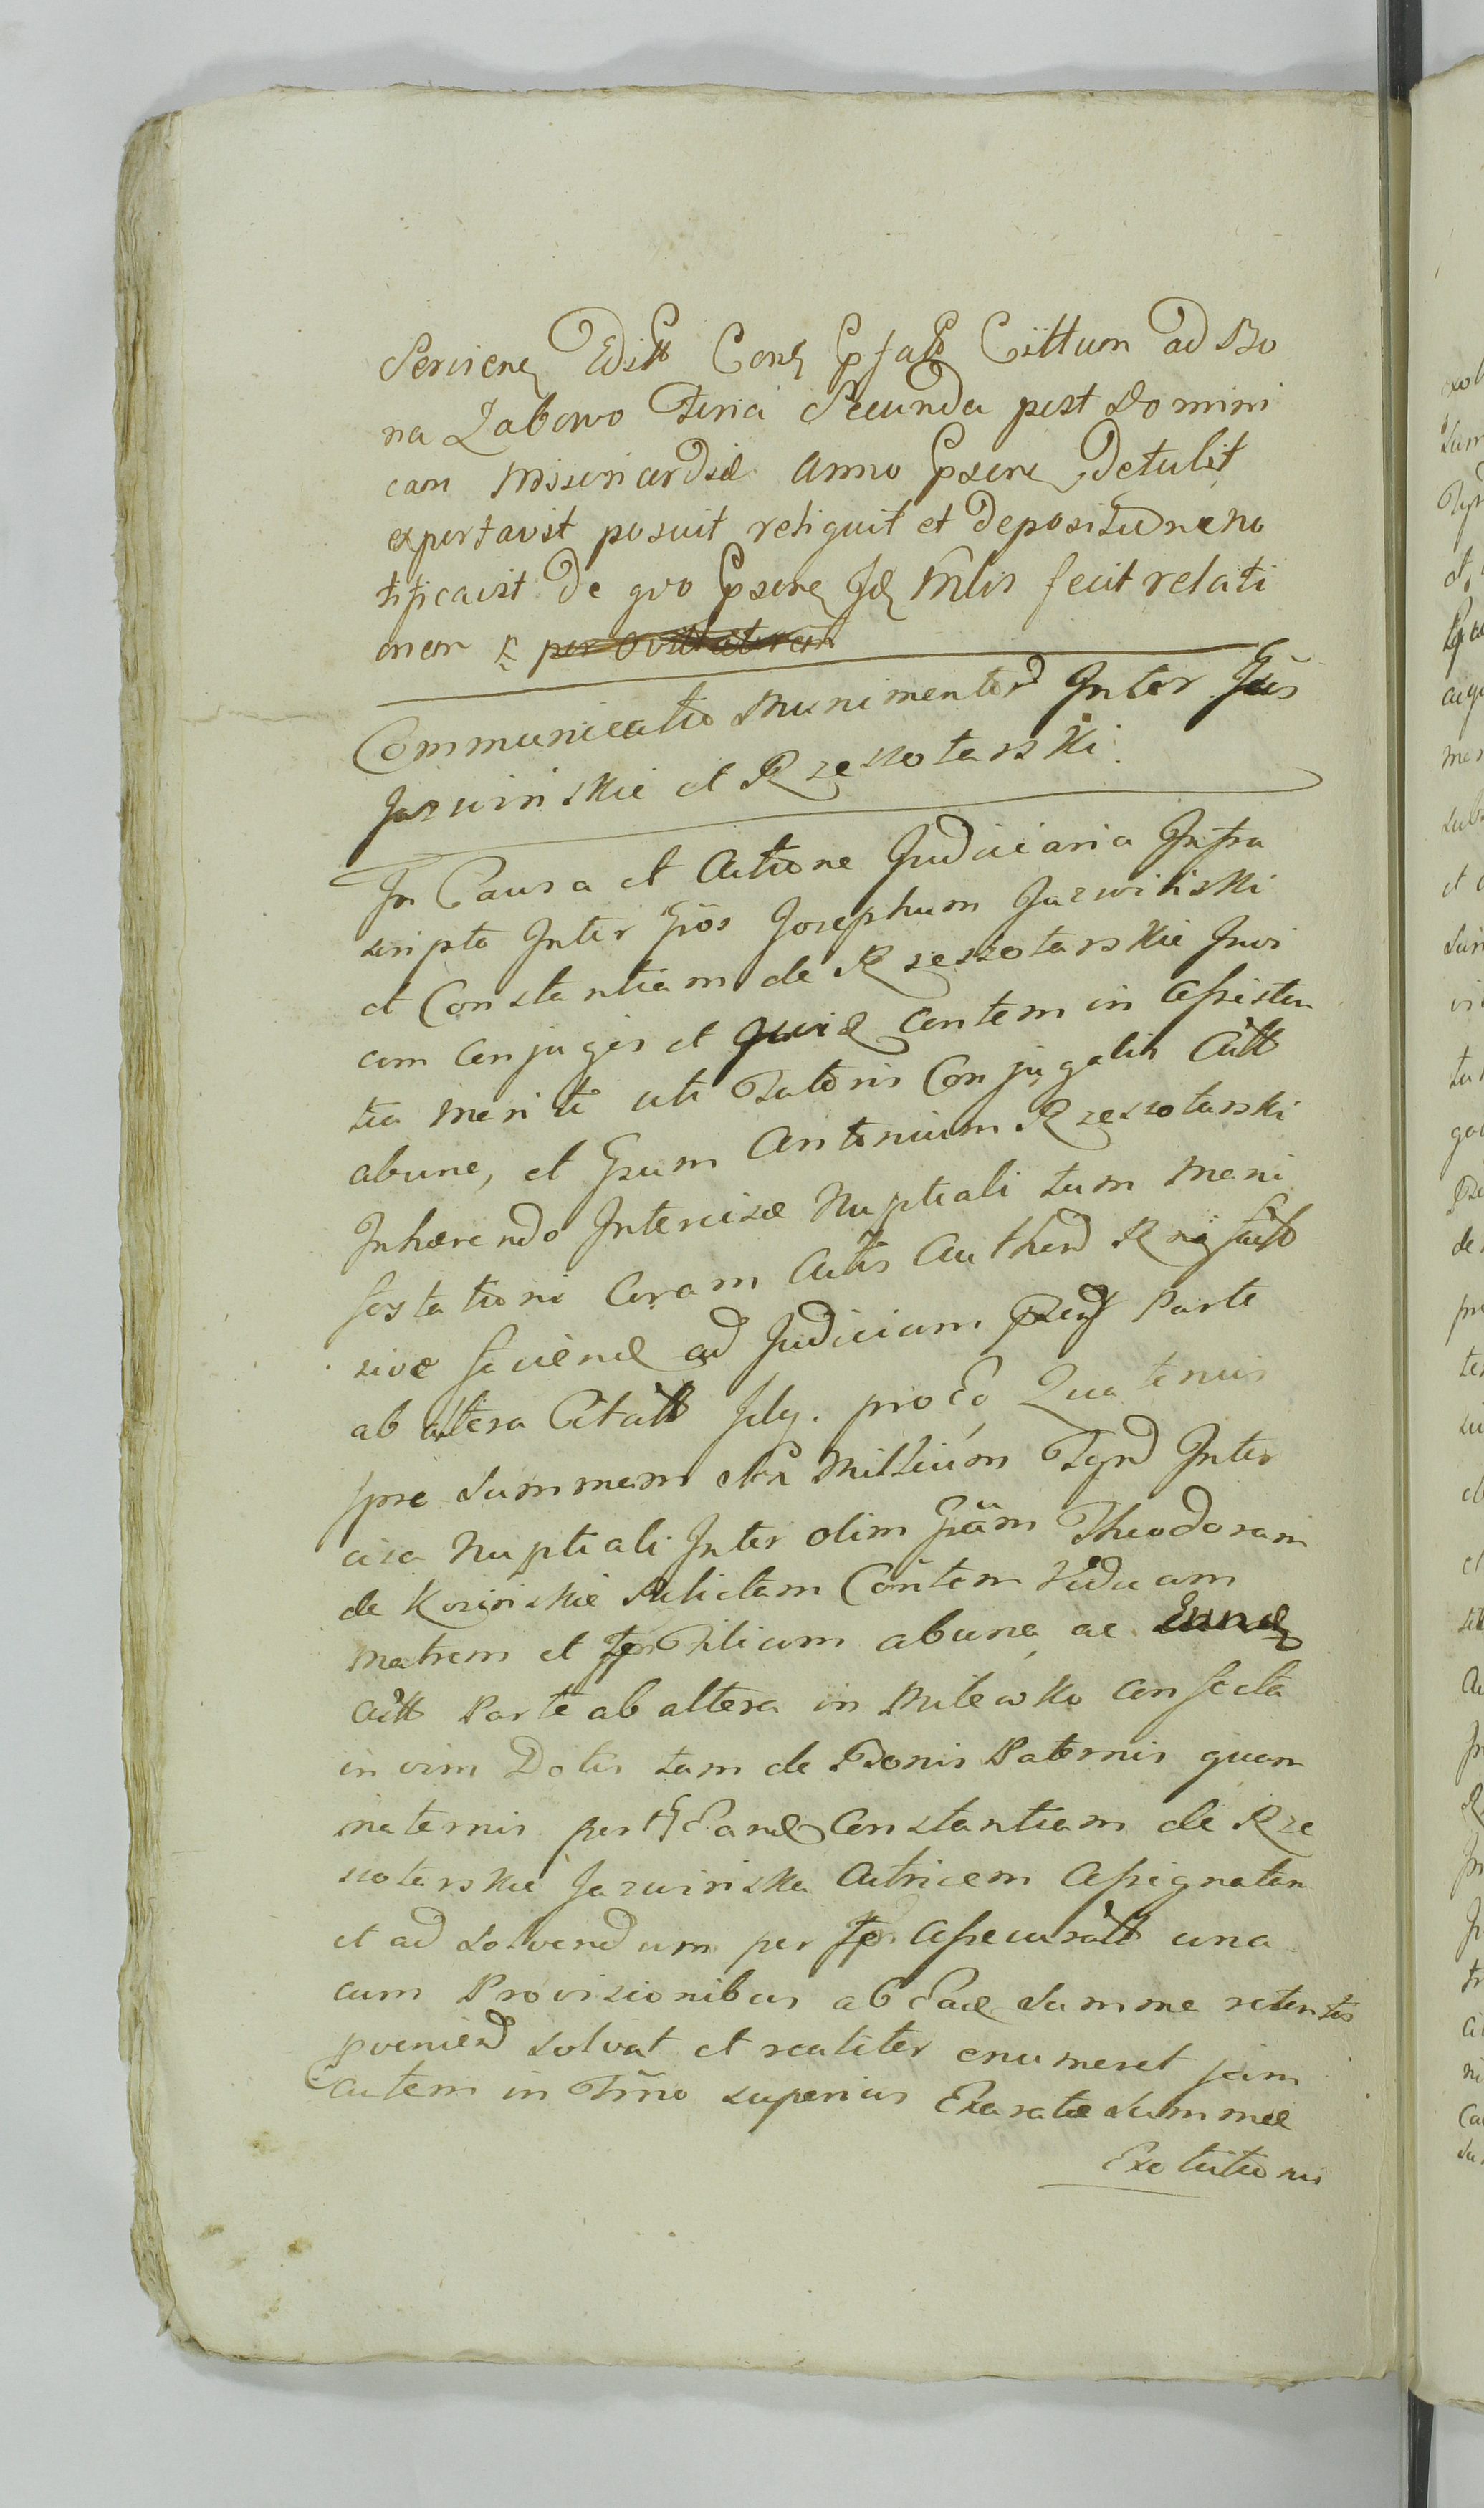 Servien Edit Con Cittum ad Bo
na Zabowo Feria Secunda post Domini
cam Misericordiæ Anno Psen Detulit
exportavit posuit reliquit et depositum eno
tificavit De quo Psen Jd Mtlis fecit relati
onem
Communicatio Munimentor Inter Gs
Jarzwinskie et Rzessotarski
In Causa et Actione Judiciaria Infra
scripta Inter Gsos Josephum Jazwinski
et Constantiam de Rzeszotarskie Invi
cem Conjuges et Contem in Assisten
tia Mariti uti Tutoris Conjugalis Actt
ab una, et Gsum Antonium Rzessotarski
Inhærendo Intercisæ Nuptiali tum Mani
festationi Coram Actis Authen
sive faciend ad Judicium Parte
ab altera Citatt pro Eo Quatenus
Ipse Summam Millium Inter
cisa Nuptiali Inter olim Gsam Theodoram
de Kosinskie Relictam Contem Viduam
Matrem et Filium ab una ac
Actt Parte ab altera in Milewko confecta
in vim Dotis tam de Bonis Paternis quam
maternis per Eand Constantiam de Rze
szotarskie Jazwinska Actricem Assignatam
et ad Solvendum per Assecuratt una
cum Provisionibus ab Ead Summe retentis
pveniend Solvat et realiter enumeret jam
autem in Tsno superius Exaratæ Summæ
Exolutionis